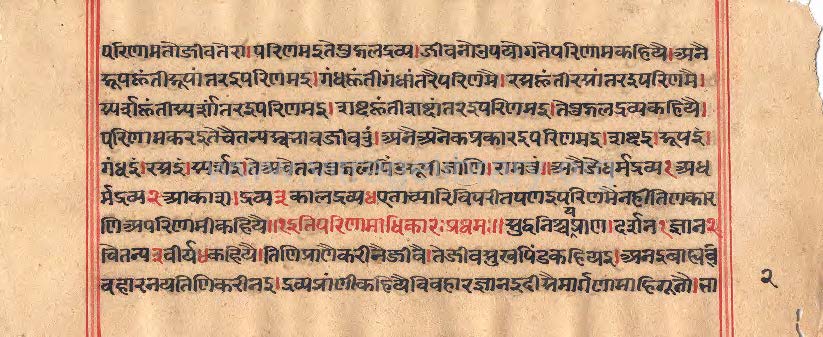 परिणमतौजीवतेरा।परिणमइतेपुद्गलद्रव्य।जीवनोउपयोगतेपरिणामकहियै।अनै
रूपछंतीरूपांतरइपरिणमइ।गंधछंतीगंधांतरैपरिणमै।रसछंतीरसांतरइपरिणमै।
स्पर्शछंतीस्पर्शांतरइपरिणमइ।शब्दछंतीशब्दांतरइपरिणमइ।तेपुद्गलद्रव्यकहियै।
परिणामकरइतेचैतन्यस्वभावजीवइं।अनैअनेकप्रकारइपरिणमइ।शब्दइं।रूपइं।
गंधइं।रसइं।स्पर्शइ।तेअचेतनपुद्गलपिंडरूपीजाणि।अनैधर्मद्रव्य१अध
र्मद्रव्य२आकाश।द्रव्य३कालद्रव्य४एताच्यारिविपरीतपणइपरिणमैनहीतिणकार
णिअपरिणामीकहियै॥१इतिपरिणामाधिकारःप्रथमः॥सुद्धनिश्चयप्राण।दर्शन१ज्ञान२
चेतन्य३वीर्य४कहियै।तिणिप्राणैकरीनैजीवै।तेजीवसुखपिंडकहियइ।अनइबाह्यव्य
वहारनयतिणिकरीनइ।द्रव्यप्राणीकहियैविवहारज्ञानइदीसैमार्गणामाहि।सा
२